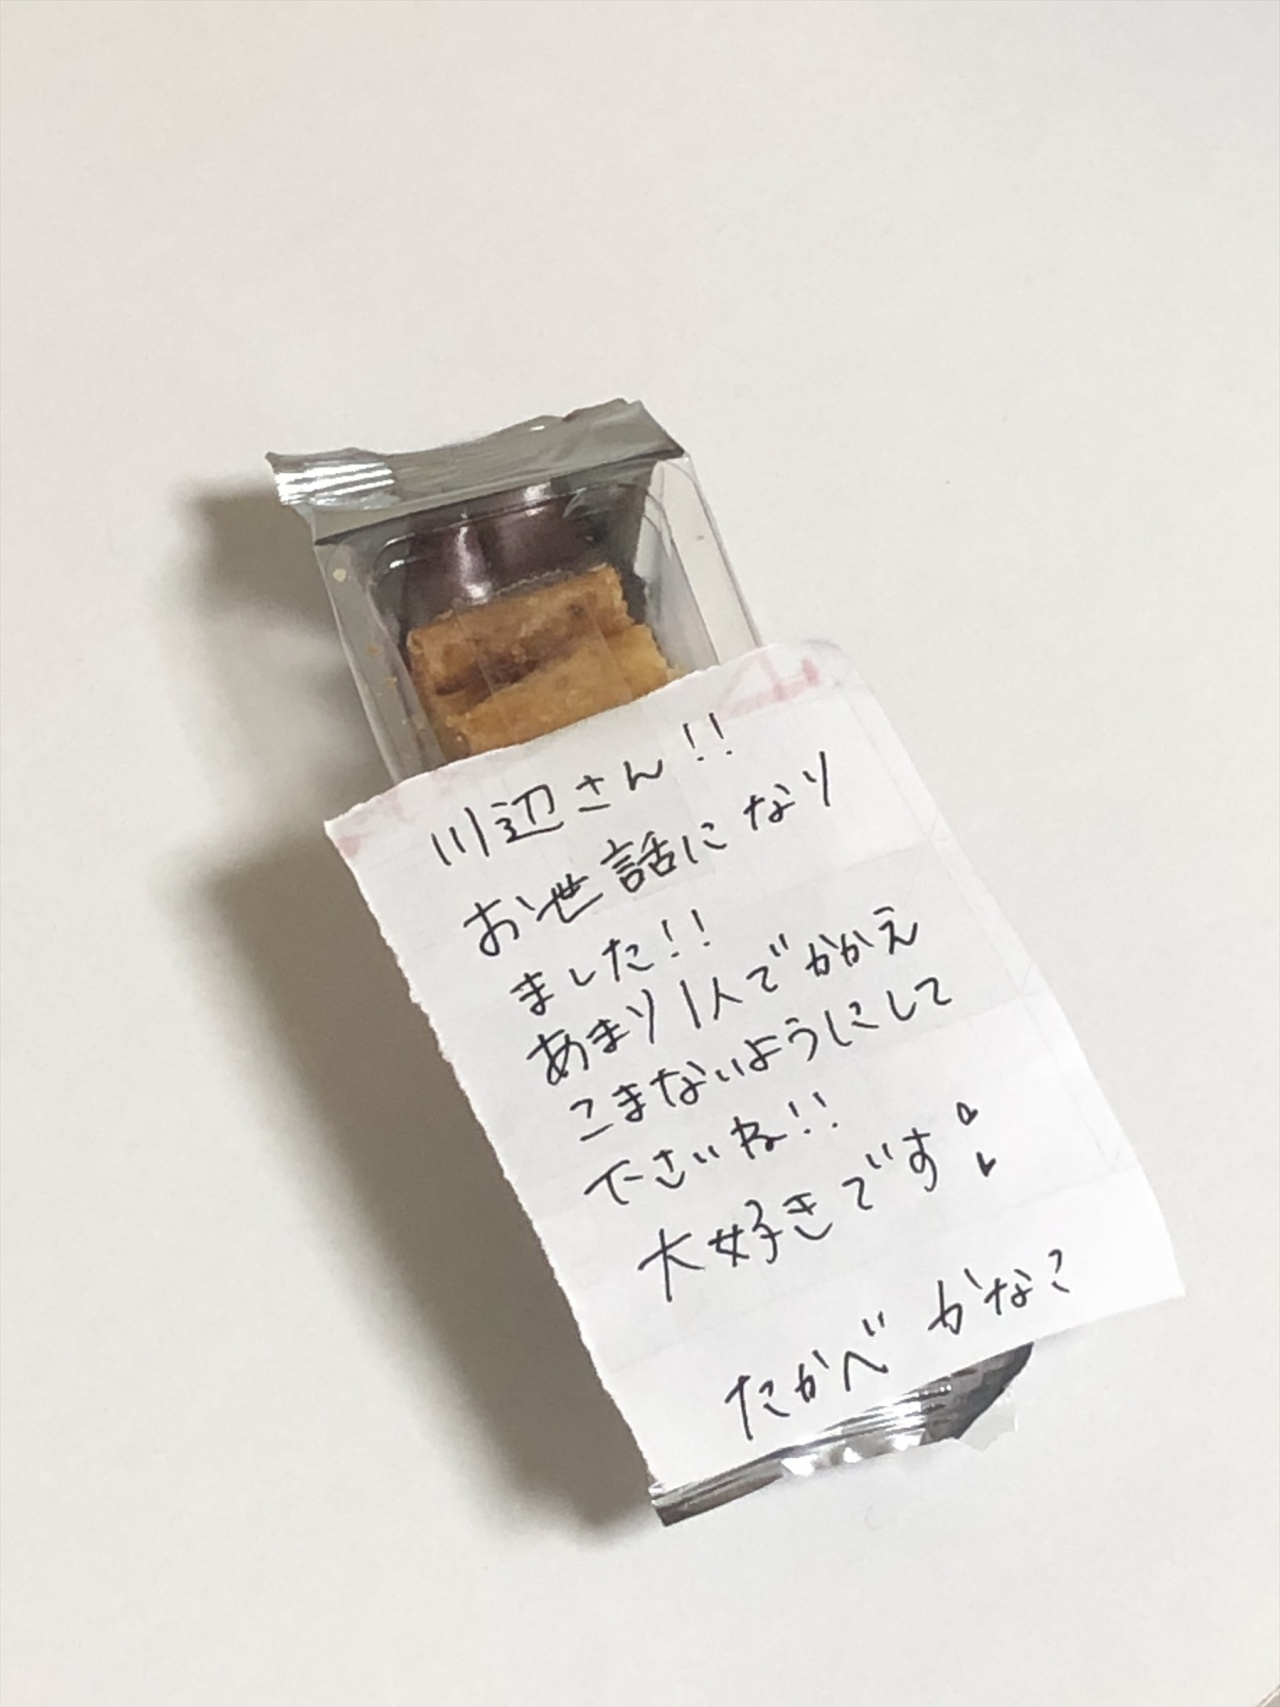 川辺さん!!
お世話になり
ました!!
あまり1人でかかえ
こまないようにして
下さいね!!
大好きです♡♥
たかべ かなこ